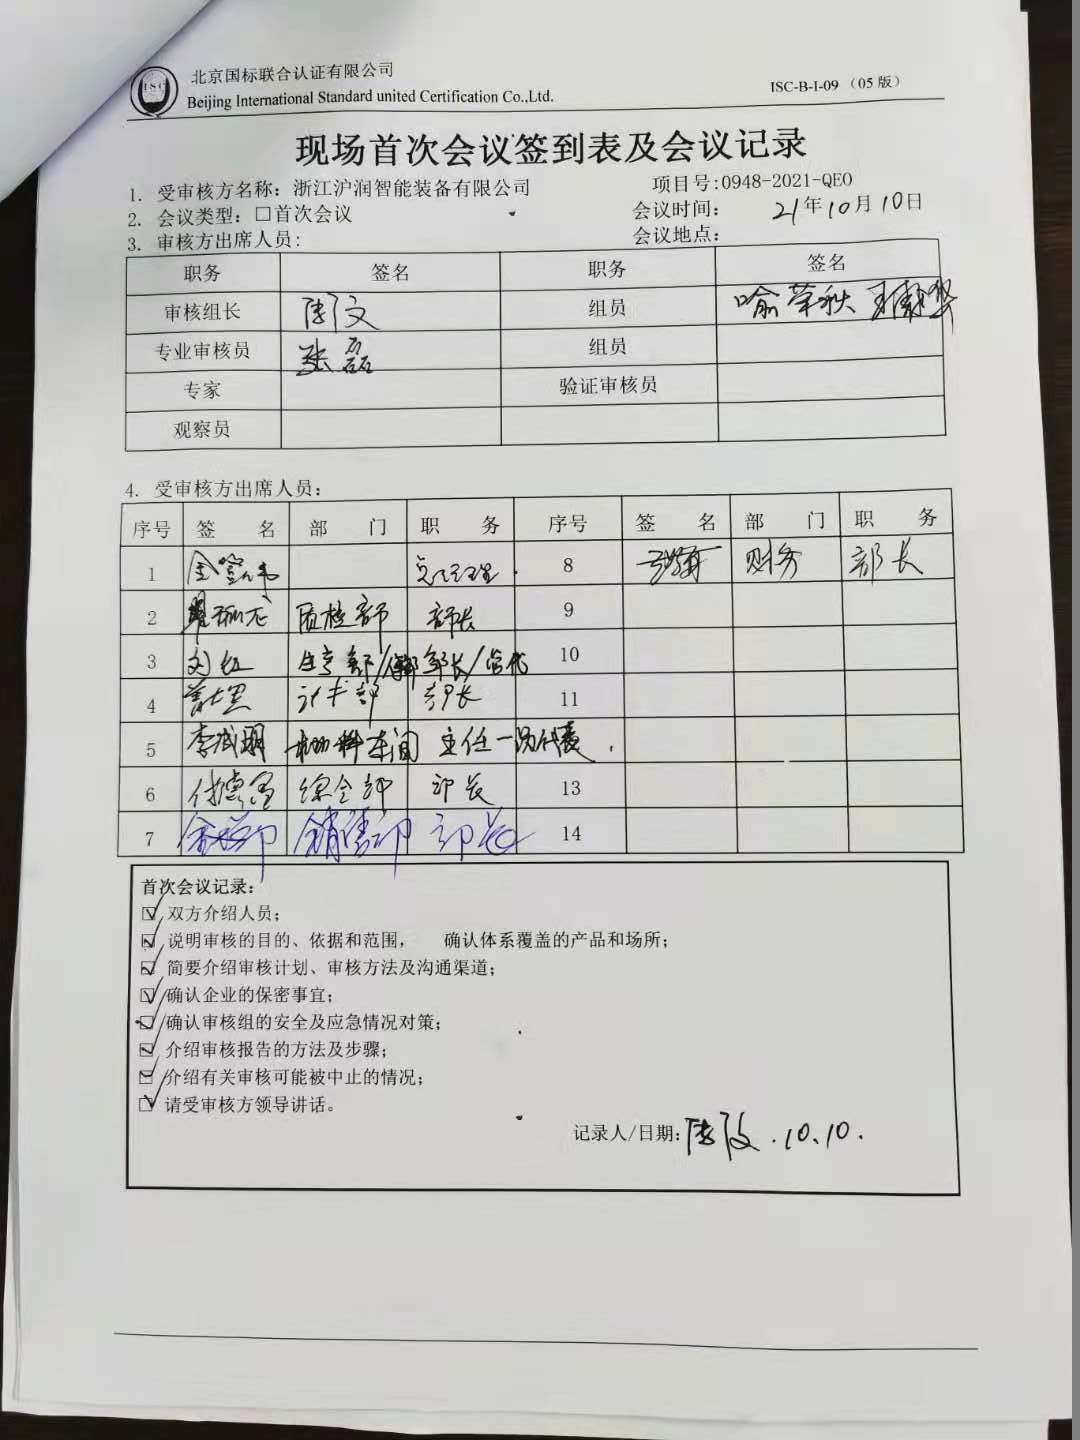 ISC
北京国标联合认证有限公司
Beijing International Standard united Certification Co.,Ltd.
ISC-B-I-09 (05 版)
现场首次会议签到表及会议记录
1. 受审核方名称: 浙江沪润智能装备有限公司 项目号:0948-2021-QEO
2. 会议类型: □首次会议 会议时间: 21年10月10日
3. 审核方出席人员: 会议地点:
职务 签名 职务 签名
审核组长 组员 喻荣秋
专业审核员 张磊 组员
专家 验证审核员
观察员
4. 受审核方出席人员:
序号 签 名 部 门 职 务 序号 签 名 部 门 职 务
1 总经理 8 财务 部长
2 质检部 部长 9
3 刘红 生产部/ 部长/管代 10
4 部长 11
5 李成明 车间 主任 员代表
6 综合部 部长 13
7 销售部 部长 14
首次会议记录:
双方介绍人员;
说明审核的目的、依据和范围, 确认体系覆盖的产品和场所;
简要介绍审核计划、审核方法及沟通渠道;
确认企业的保密事宜;
确认审核组的安全及应急情况对策;
介绍审核报告的方法及步骤;
介绍有关审核可能被中止的情况;
请受审核方领导讲话。
记录人/日期: 10.10.